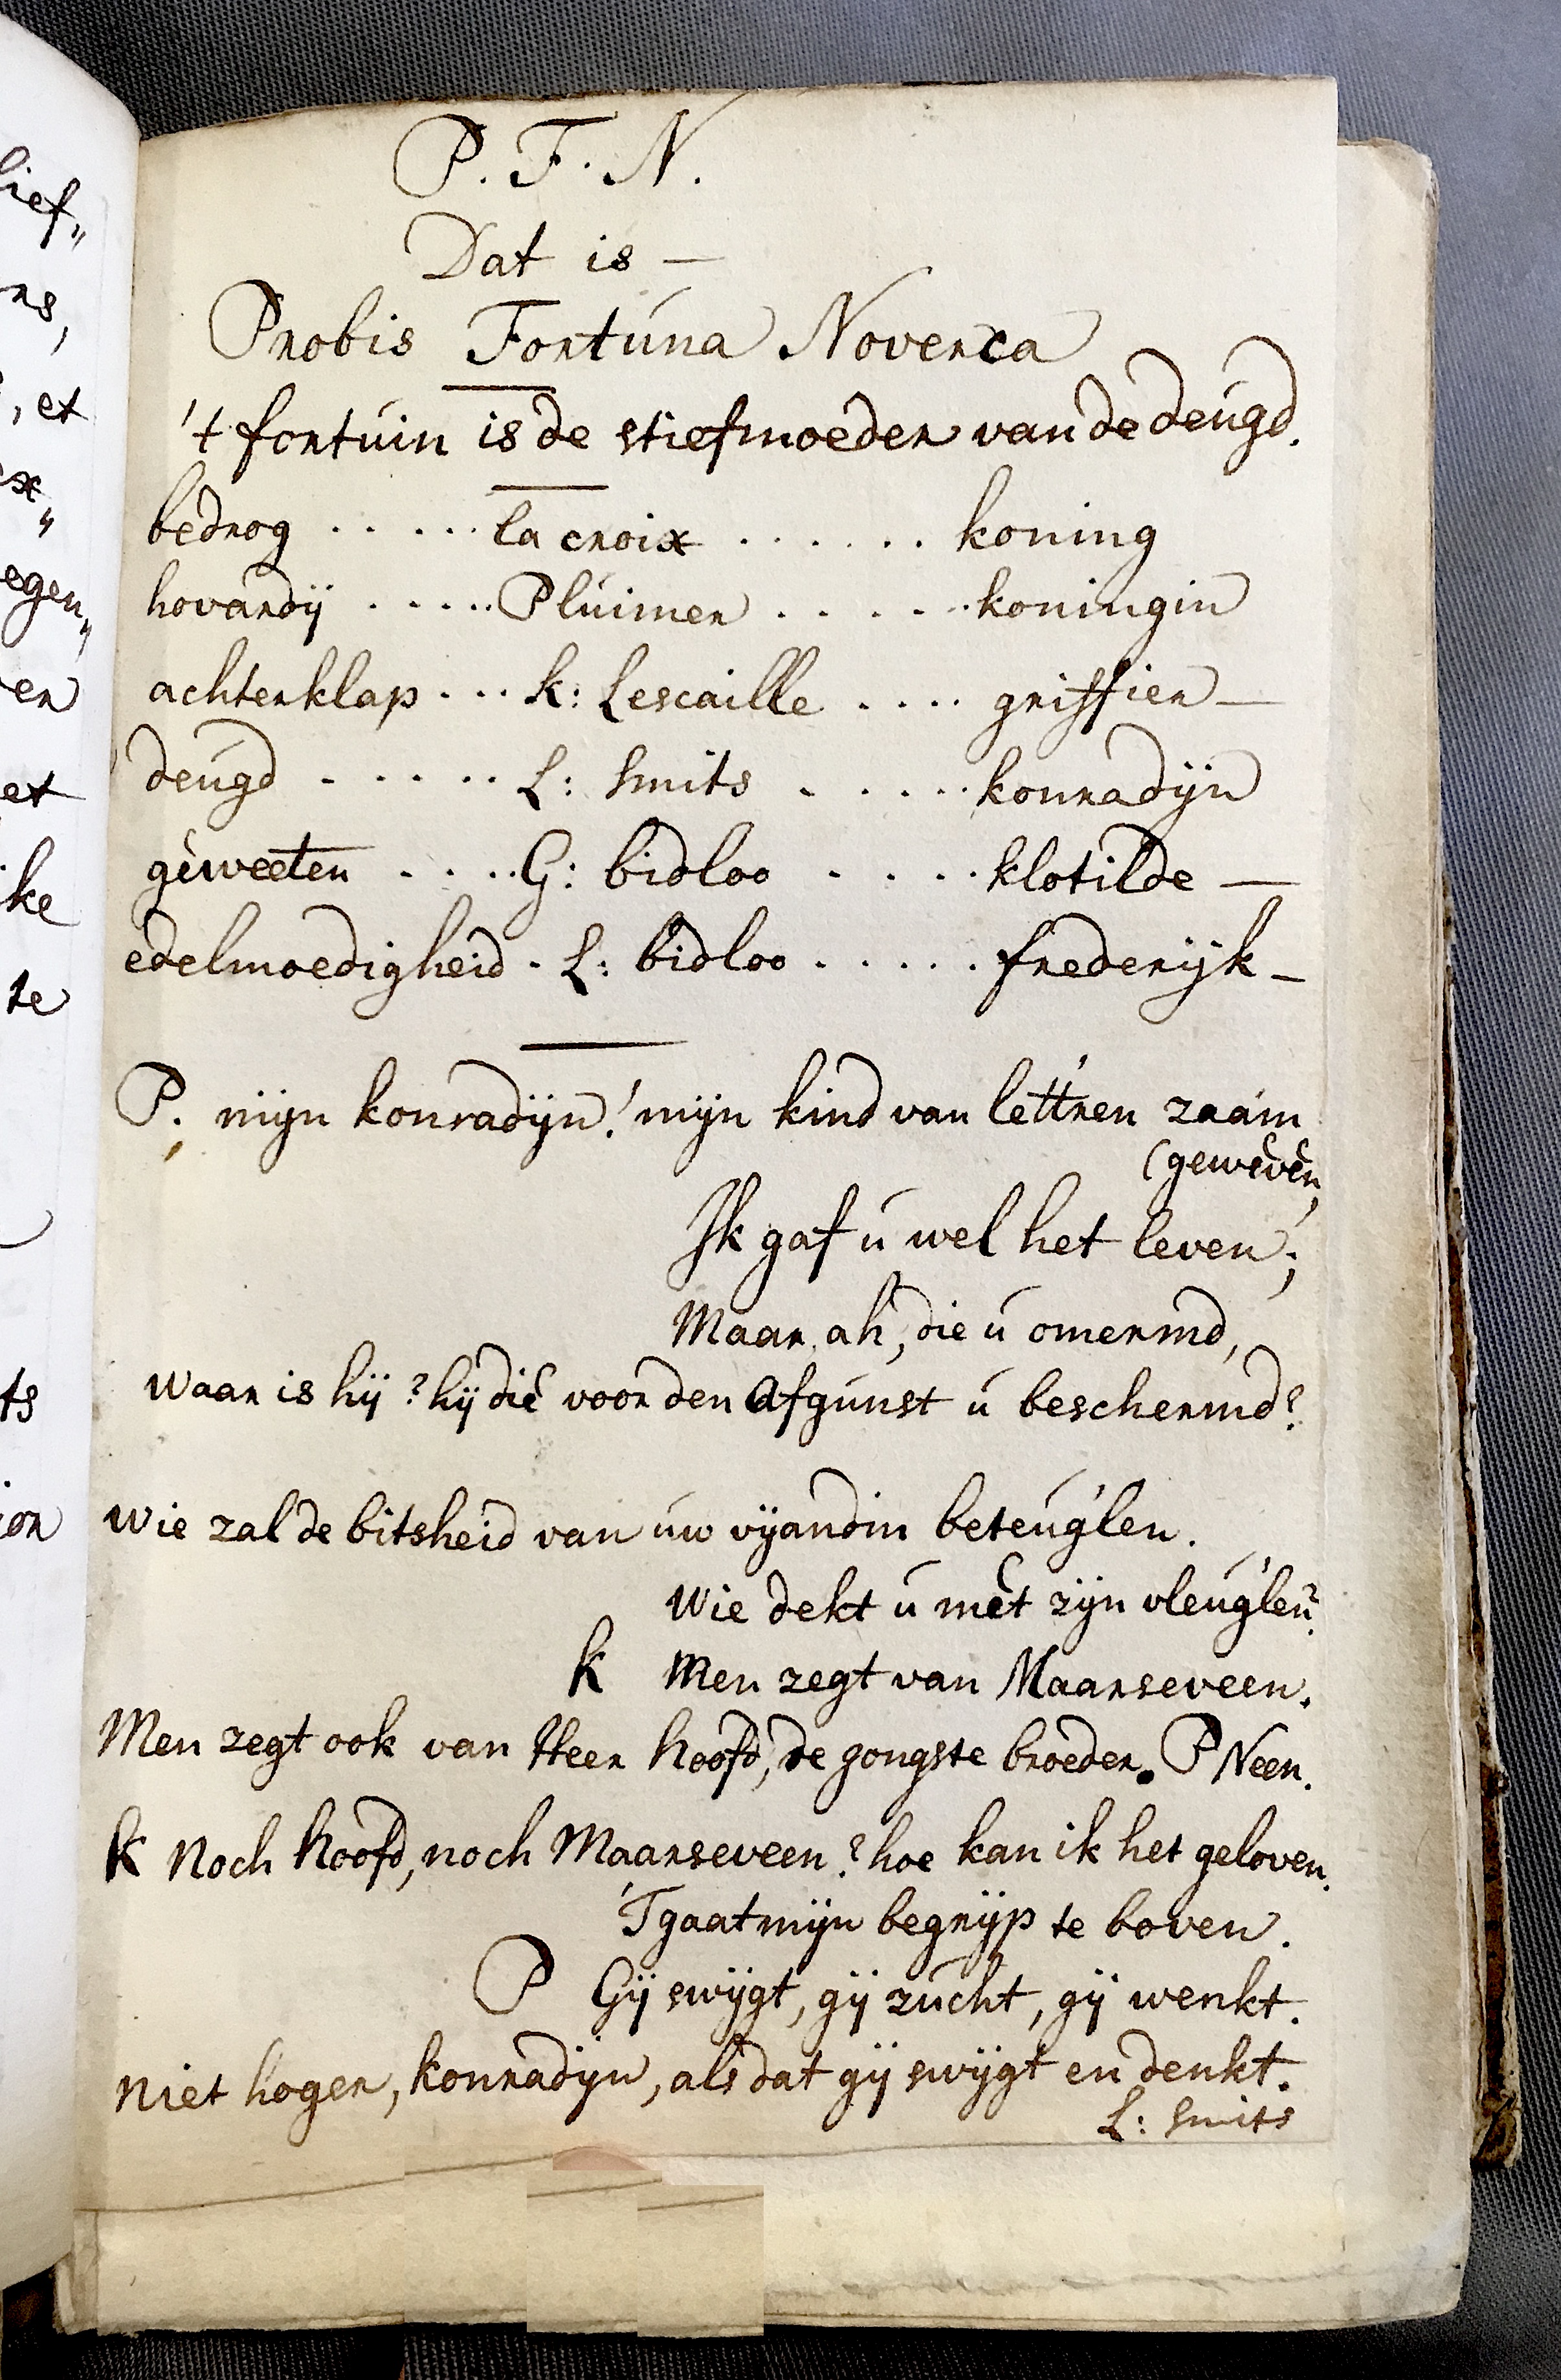 P. F. N.
Dat is —
Probis Fortúna Noverca
't fortuin is de stiefmoeder van de deúgd.
bedrog . . . . . . la croix . . . . . . koning
hovardij . . . . . Plúimer . . . . . . koningin
achterklap . . . k: Lescaille . . . . griffier —
deúgd . . . . . . L: Smits . . . . . . konradijn
geweeten . . . . . G: bidloo . . . . . klotilde —
edelmoedigheid . L: bidloo . . . . . . frederijk —
P: mijn konradijn! mijn kind van lett'ren zaâm
(geweven,
Ik gaf ú wel het leven;
Maar ah, die ú omermd,
waar is hij? hij die voor den Afgúnst ú beschermd?
wie zal de bitsheid van úw vijandin beteúg'len.
wie dekt ú met zijn vleúg'len?
k Men zegt van Maarseveen.
Men zegt ook van Heer hoofd, de gongste broeder. P Neen.
k Noch hoofd, noch Maarseveen? hoe kan ik het geloven.
'T gaat mijn begrijp te boven.
P Gij swijgt, gij zúcht, gij wenkt.
niet hoger, konradijn, als dat gij swijgt en denkt.
L: Smits
ief„
ns,
, et
egen„
er
et
ke
te
ts